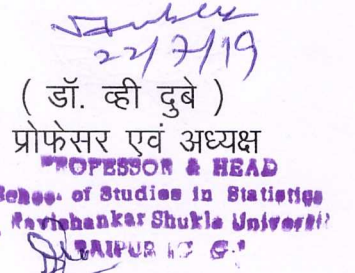 22/7/19
( डॉ. व्ही दुबे )
प्रोफेसर एवं अध्यक्ष
PROFESSOR & HEAD
School of Studies in Statistics
Ravishankar Shukla Universit
RAIPUR (C G.)